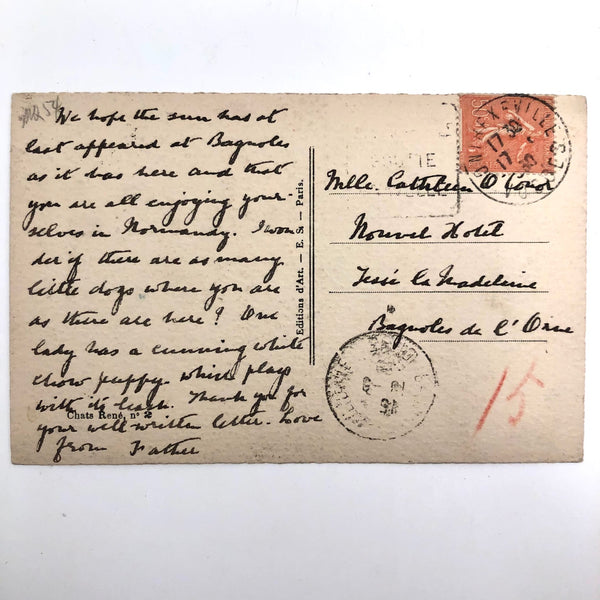 We hope the sun has at
last appeared at Bagnoles
as it has here and that
you are all enjoying your-
selves in Normandy. I won
der if there are as many
little dogs where you are
as there are here? One
lady has a cunning white
chow puppy which plays
with its leash. Thank you for
your well written letter. Love
from Father
Chats René, nº 2
Editions d'Art. — E. S. — Paris.
Mlle. Cathleen O'Conor
Nouvel Hotel
Tessé la Madeleine
Bagnoles de l'Orne
15
17 30
17